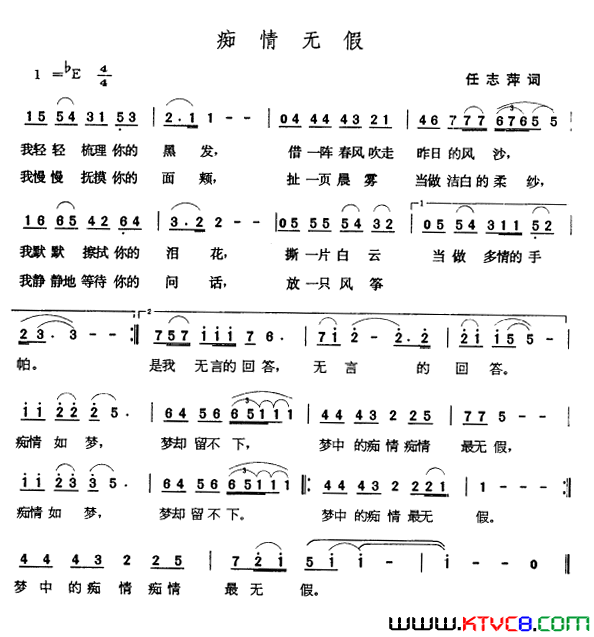 痴情无假
1=♭E 4/4
任志萍词
15 54 31 53 | 2·1 - - | 04 44 43 21 | 46 777 6765 5 |
我轻轻 梳理你的 黑发, 借一阵春风吹走 昨日的风沙,
我慢慢 抚摸你的 面颊, 扯一页晨雾 当做洁白的柔纱,
16 65 42 64 | 3·2 - - | 05 55 54 32 | 1 055 54 311 52 |
我默默 擦拭你的 泪花, 撕一片白云 当做多情的手
我静静地等待你的 问话, 放一只风筝
23· 3 - - :| 2 757 iii 76· | 7i 2 - 2·2 | 2i i55 - - |
帕。 是我无言的回答, 无言的回答。
ii 22 25· | 64 56 222 65111 | 44 43 2 25 | 77 5 - - |
痴情如梦, 梦却留不下, 梦中的痴情痴情 最无假,
ii 23 35· | 64 56 222 65111 |: 44 43 2 221 | 1 - - - :|
痴情如梦, 梦却留不下。 梦中的痴情最无 假。
4 4 4 3 2 2 5 | 7 2i | 5 i - - | i - - 0 ‖
梦中的痴情痴情 最无假。
www.KTVC8.com